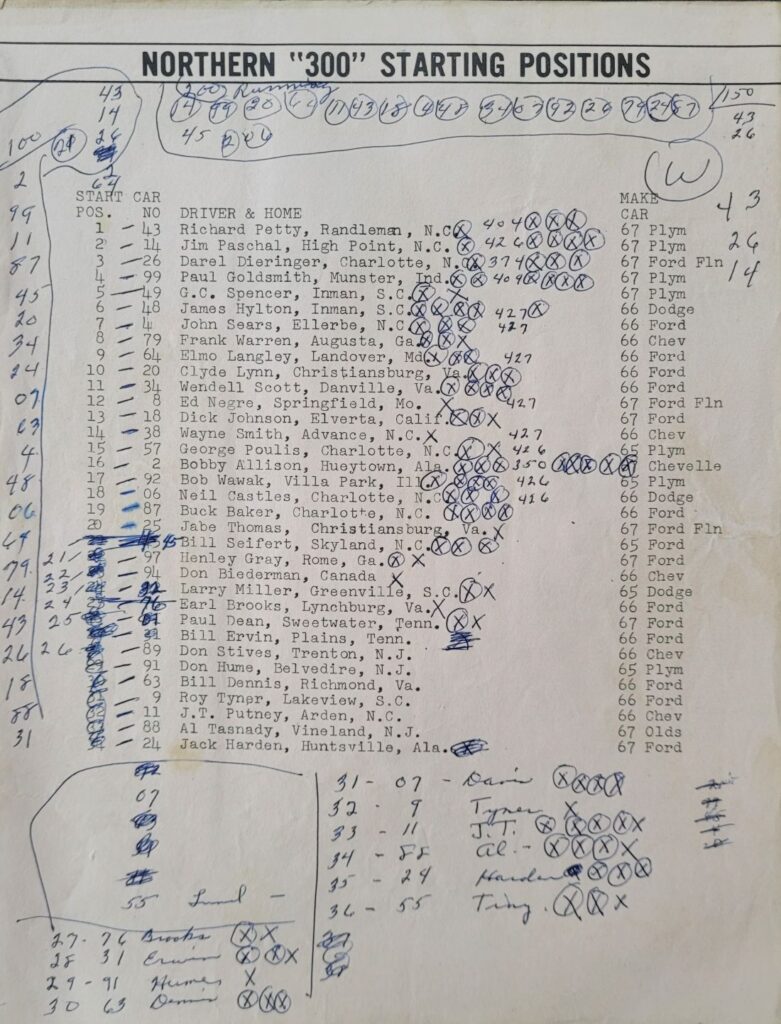 NORTHERN "300" STARTING POSITIONS
200 Running
14 99 20 64 11 43 18 4 48 34 07 92 26 79 24 87
45 2 06
150
43
26
W
43
26
14
43
14
26
64
100
2
99
11
87
45
20
34
24
07
63
4
48
06
64
79
14
43
26
18
88
31
START CAR MAKE
POS. NO DRIVER & HOME CAR
1 - 43 Richard Petty, Randleman, N.C. X 404 X X X 67 Plym
2 - 14 Jim Paschal, High Point, N.C. X 426 X X X X 67 Plym
3 - 26 Darel Dieringer, Charlotte, N.C. X 374 X X X 67 Ford Fln
4 - 99 Paul Goldsmith, Munster, Ind. X X 404 X X X X 67 Plym
5 - 49 G.C. Spencer, Inman, S.C. X X 67 Plym
6 - 48 James Hylton, Inman, S.C. X X X X 427 X 66 Dodge
7 - 4 John Sears, Ellerbe, N.C. X X X 427 66 Ford
8 - 79 Frank Warren, Augusta, Ga. X X X 66 Chev
9 - 64 Elmo Langley, Landover, Md. X X X 427 66 Ford
10 - 20 Clyde Lynn, Christiansburg, Va. X X X 66 Ford
11 - 34 Wendell Scott, Danville, Va. X X X X 66 Ford
12 - 8 Ed Negre, Springfield, Mo. X 427 67 Ford Fln
13 - 18 Dick Johnson, Elverta, Calif. X X X 67 Ford
14 - 38 Wayne Smith, Advance, N.C. X 427 66 Chev
15 - 57 George Poulis, Charlotte, N.C. X X 426 65 Plym
16 - 2 Bobby Allison, Hueytown, Ala. X X X 350 X X X X X Chevelle
17 - 92 Bob Wawak, Villa Park, Ill. X X X X 426 65 Plym
18 - 06 Neil Castles, Charlotte, N.C. X X X 426 66 Dodge
19 - 87 Buck Baker, Charlotte, N.C. X X X X 66 Ford
20 - 25 Jabe Thomas, Christiansburg, Va. X 67 Ford Fln
45 Bill Seifert, Skyland, N.C. X X X 65 Ford
21 - 97 Henley Gray, Rome, Ga. X X 67 Ford
22 - 94 Don Biederman, Canada X 66 Chev
23 - Larry Miller, Greenville, S.C. X X 65 Dodge
24 - 76 Earl Brooks, Lynchburg, Va. X 66 Ford
25 - Paul Dean, Sweetwater, Tenn. X X 67 Ford
- 31 Bill Ervin, Plains, Tenn. 66 Ford
26 - 89 Don Stives, Trenton, N.J. 66 Chev
- 91 Don Hume, Belvedire, N.J. 65 Plym
- 63 Bill Dennis, Richmond, Va. 66 Ford
- 9 Roy Tyner, Lakeview, S.C. 66 Ford
- 11 J.T. Putney, Arden, N.C. 66 Chev
- 88 Al Tasnady, Vineland, N.J. 67 Olds
- 24 Jack Harden, Huntsville, Ala. 67 Ford
07
55 Lund -
27 - 76 Brooks X X
28 31 Erwin X X X
29 - 91 Humes X
30 63 Dennis X X X
31 - 07 - Davis X X X X
32 - 9 Tyner X
33 - 11 J.T. X X X X X
34 - 88 Al. - X X X X
35 - 24 Harden X X X
36 - 55 Tiny. X X X